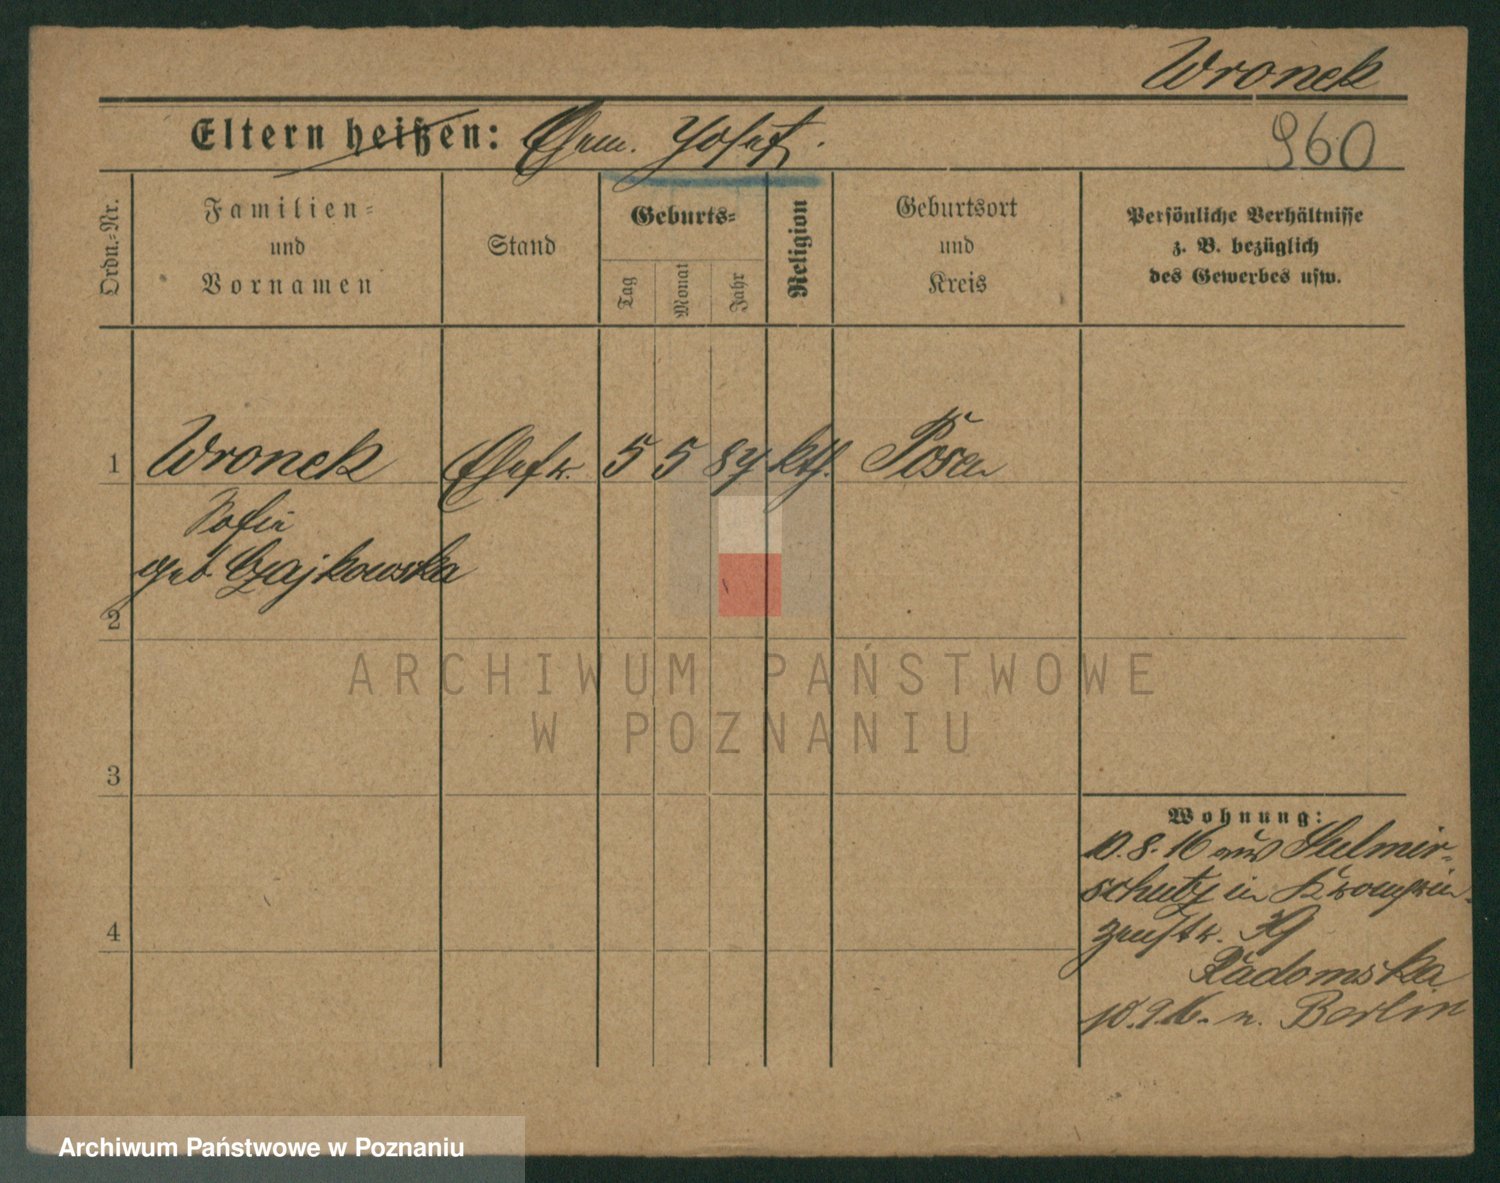 Wronek
960
Eltern heißen: Ehem. Josef.
Ordn.-Nr.
Familien-
und
Vornamen
Stand
Geburts-
Tag
Monat
Jahr
Religion
Geburtsort
und
Kreis
Persönliche Verhältnisse
z. B. bezüglich
des Gewerbes usw.
1 Wronek Ehefr. 5 5 84 kth. Posen
Sofie
geb. Czajkowska
2
ARCHIWUM PAŃSTWOWE
W POZNANIU
3
4
Wohnung:
10.8.16 aus Sulmir-
schütz in Kronprin-
zenstr. 39
Radomska
10.9.16. n. Berlin
Archiwum Państwowe w Poznaniu